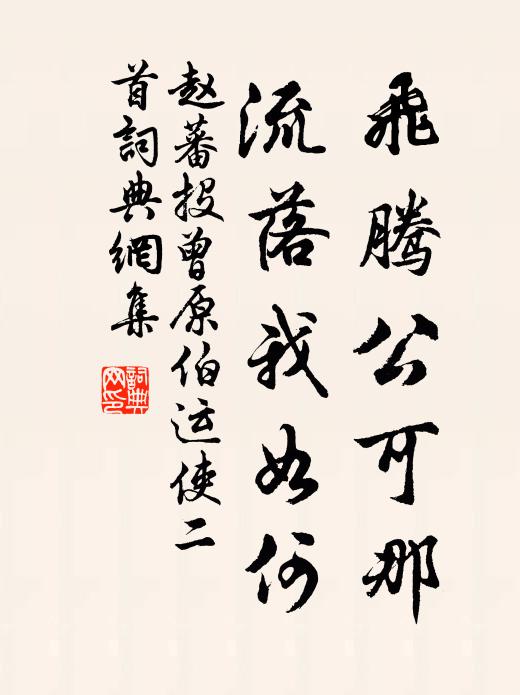 飛騰公可那
流落我如何
赵蕃投曾原伯运使二
首詞典網集
詞典
网印